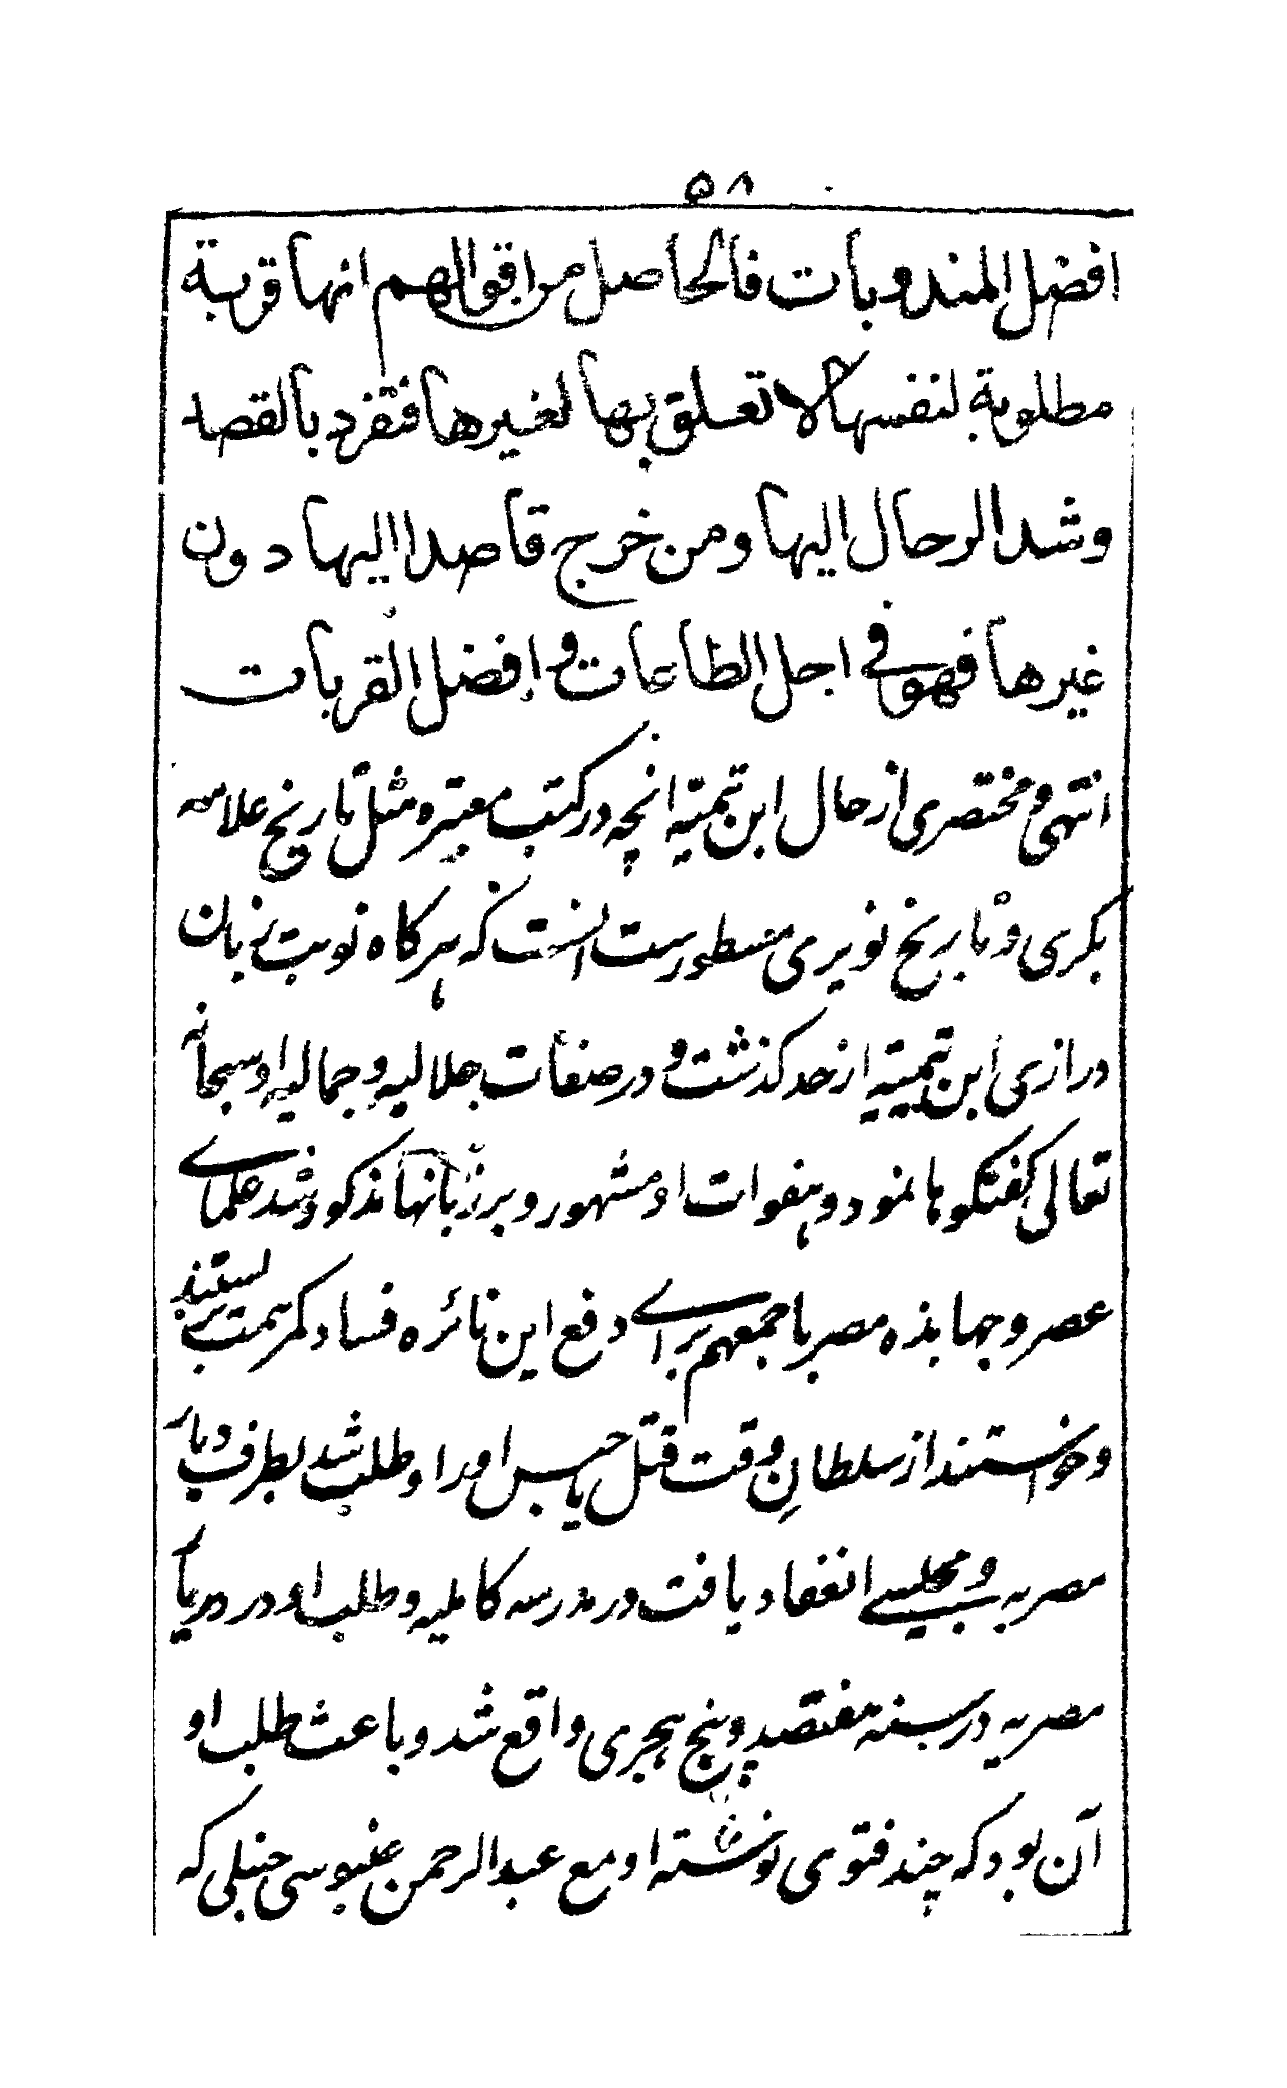 ۵۸
افضل المندوبات فالحاصل من اقوالهم انها قربة
مطلوبة لنفسها لا تعلق بها لغيرها فتفرد بالقصد
وشد الرحال اليها ومن خرج قاصدا اليها دون
غيرها فهو في اجل الطاعات و افضل القربات
انتهى و مختصرى از حال ابن تيميّه انچه در كتب معتبره مثل تاريخ علامه
بكرى و تاريخ نويرى مسطورست انست كه هر كاه نوبت زبان
درازى ابن تيميّه از حد كذشت و در صفات جلاليه و جماليه او سبحانه
تعالى كفتكوها نمود و هفوات او مشهور و بر زبانها مذكور شد علماے
عصر و جهابذه مصر باجمعهم براے دفع اين نائره فساد كمر همت بربستند
و خواستند از سلطانِ وقت قتل يا حبس او را و طلب شد بطرف ديار
مصريه و مجلسے انعقاد يافت در مدرسه كامليه و طلب او در ديار
مصريه در سنه هفتصد و پنج هجرى واقع شد و باعث طلب او
آن بود كه چند فتوى نوشته او مع عبد الرحمن حنبلى كه